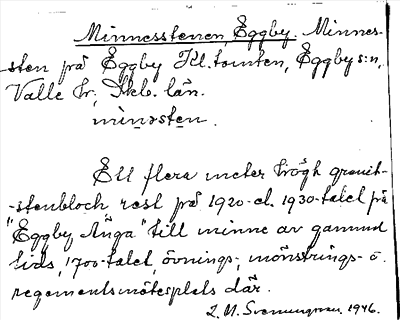 Minnesstenen, Eggby. Minnes-
sten på Eggby Kl.tomten, Eggby s:n,
Valle hr, Skb. län.
minəsten.
Ett flera meter högh granit-
-stenblock rest på 1920- el. 1930-talet på
"Eggby Änga" till minne av gammal
tids, 1700-talet, övnings-, mönstrings- o.
regementsmötesplats där.
1946.